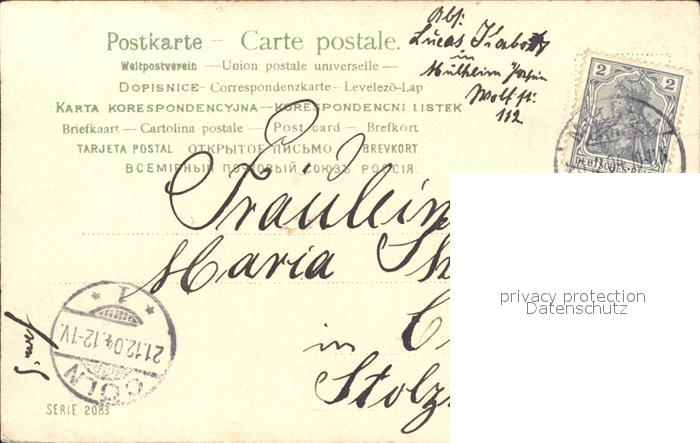 Abs:
Lucas
in
Mülheim Rhein
Wolfstr.
112
Postkarte – Carte postale.
Weltpostverein — Union postale universelle —
DOPISNICE - Correspondenzkarte - Levelező-Lap
KARTA KORESPONDENCYJNA — KORESPONDENCNI LISTEK
Briefkaart — Cartolina postale — Post card — Brefkort
TARJETA POSTAL ОТКРЫТОЕ ПИСЬМО BREVKORT.
ВСЕМІРНЫЙ ПОЧТОВЫЙ СОЮЗЪ РОССІЯ.
2 2
DEUTSCHES REICH
Fräulein
Maria
in
Stolz
privacy protection
Datenschutz
* 1 *
21.12.04.12-1V.
CÖLN
SERIE 2083